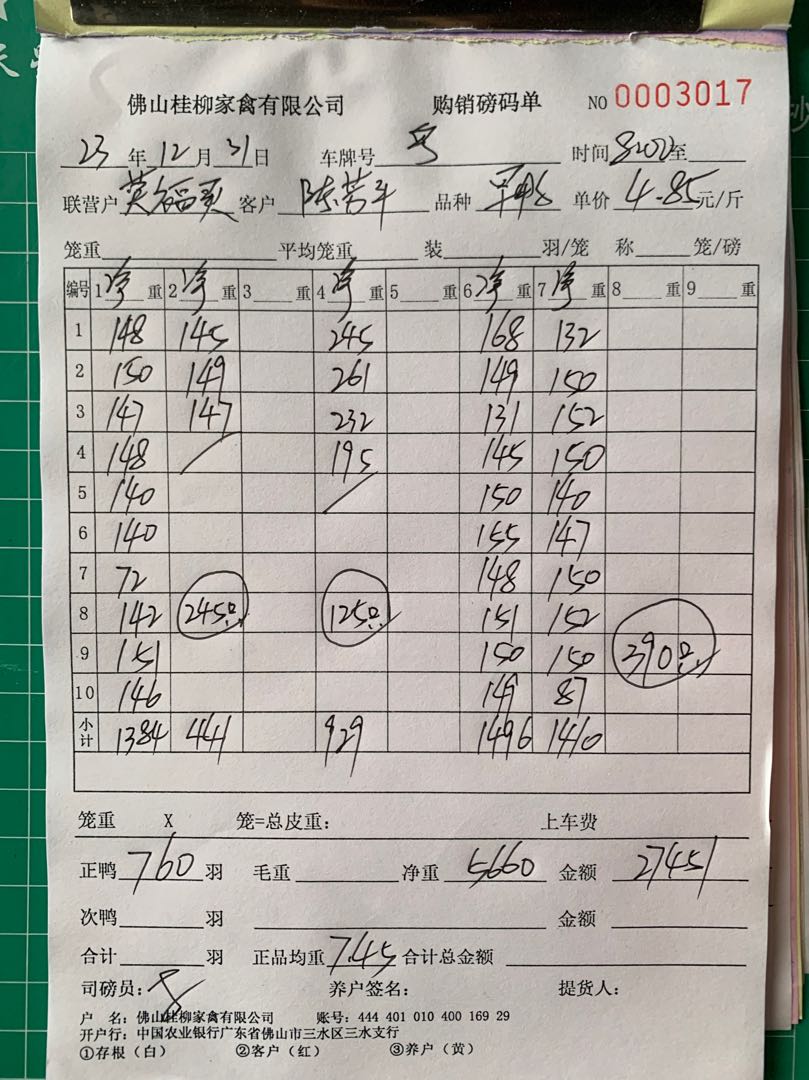 佛山桂柳家禽有限公司 购销磅码单 NO 0003017
23年12月31日 车牌号 时间 至
联营户 客户 陈 品种 单价 4.85元/斤
笼重 平均笼重 装 羽/笼 称 笼/磅
编号 1 净 重 2 净 重 3 重 4 净 重 5 重 6 净 重 7 净 重 8 重 9 重
1 148 145 245 168 132
2 150 149 261 149 150
3 147 147 232 131 152
4 148 195 145 150
5 140 150 140
6 140 155 147
7 72 148 150
8 142 245只 125只 151 152
9 151 150 150 390只
10 146 149 87
小计 1384 441 929 1496 1410
笼重 X 笼=总皮重: 上车费
正鸭 760 羽 毛重 净重 5660 金额 27451
次鸭 羽 金额
合计 羽 正品均重 7.45 合计总金额
司磅员: 养户签名: 提货人:
户 名: 佛山桂柳家禽有限公司 账号: 444 401 010 400 169 29
开户行: 中国农业银行广东省佛山市三水区三水支行
①存根(白) ②客户(红) ③养户(黄)